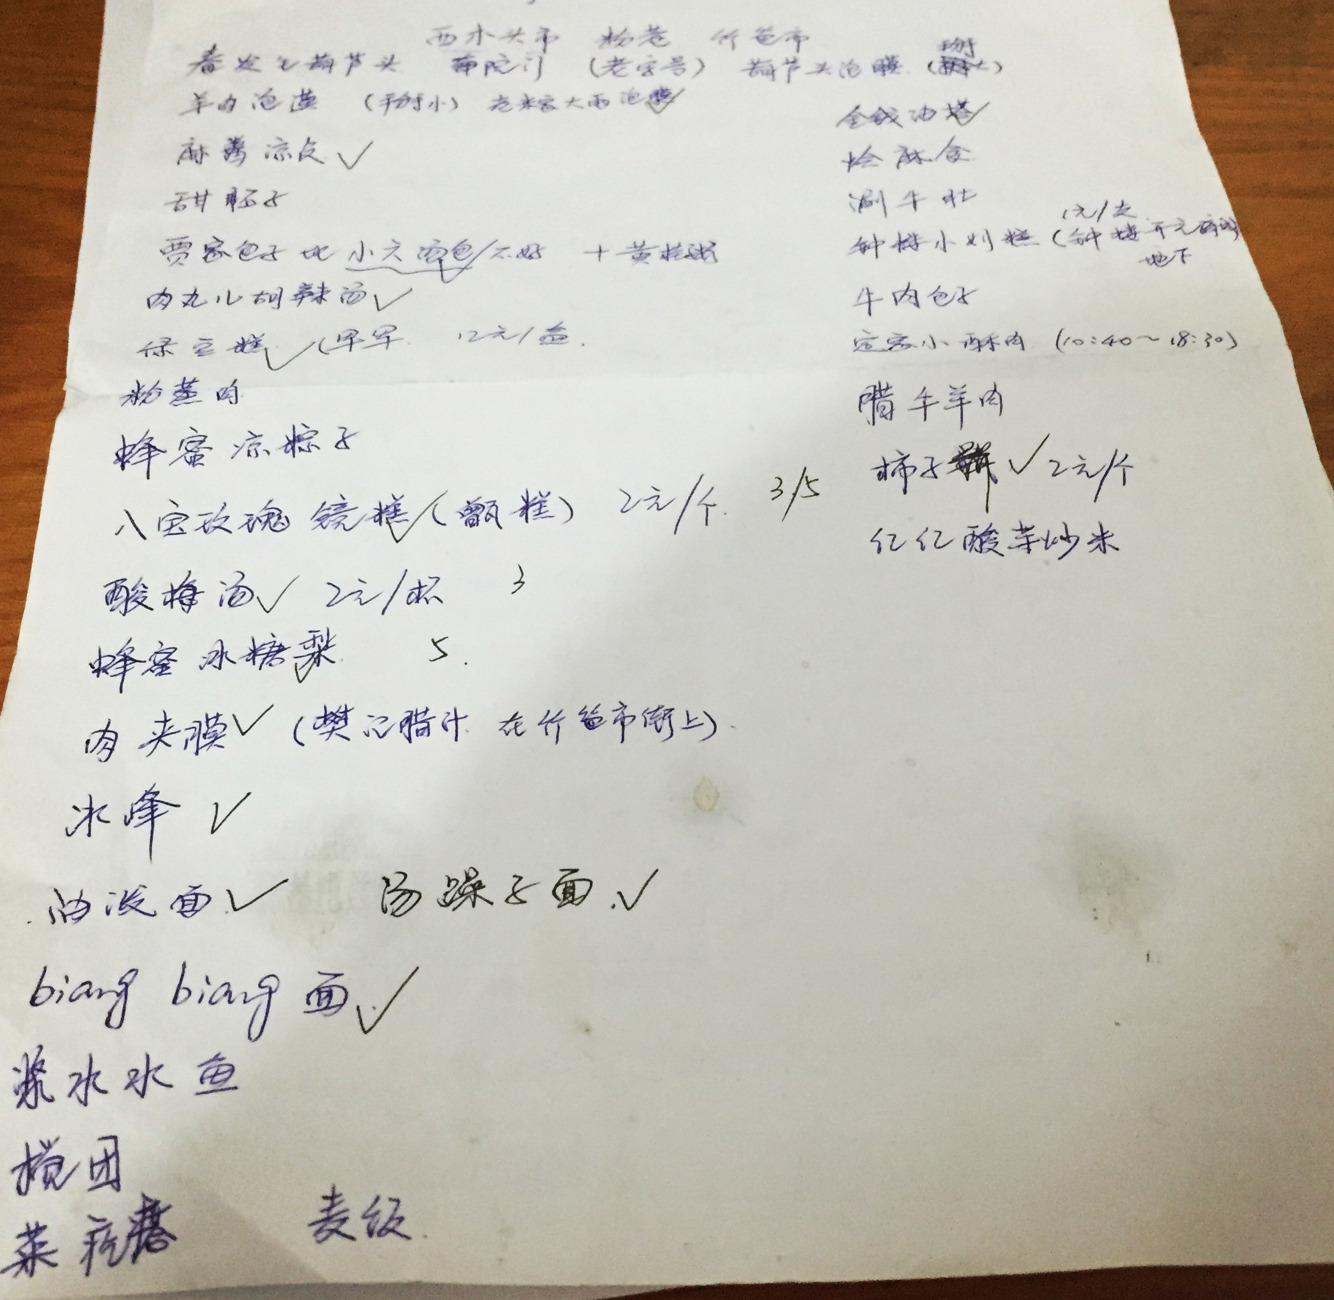 西木头市 粉巷 竹笆市
春发生葫芦头 南院门 (老字号) 葫芦头泡膜 (掰大)
羊肉泡馍 (掰小) 老米家大雨泡馍✓
金钱油塔✓
麻酱凉皮 ✓
烩麻食
甜胚子
涮牛肚
贾家包子 比小六汤包不好 + 黄桂粥
钟楼小刘糕 (钟楼开元商城地下 1元/支
肉丸儿胡辣汤✓
牛肉包子
绿豆糕✓ (罕罕 12元/盒.
定家小酥肉 (10:40~18:30)
粉蒸肉
腊牛羊肉
蜂蜜凉粽子
柿子饼 ✓ 2元/个
八宝玫瑰镜糕✓ (甑糕) 2元/个. 3/5
亿亿酸菜炒米
酸梅汤✓ 2元/杯 3
蜂蜜冰糖梨✓ 5.
肉夹膜✓ (樊记腊汁 在竹笆市街上).
冰峰 ✓
油泼面✓ 汤臊子面.✓
biang biang 面.✓
浆水水鱼
搅团
菜疙瘩 麦饭.